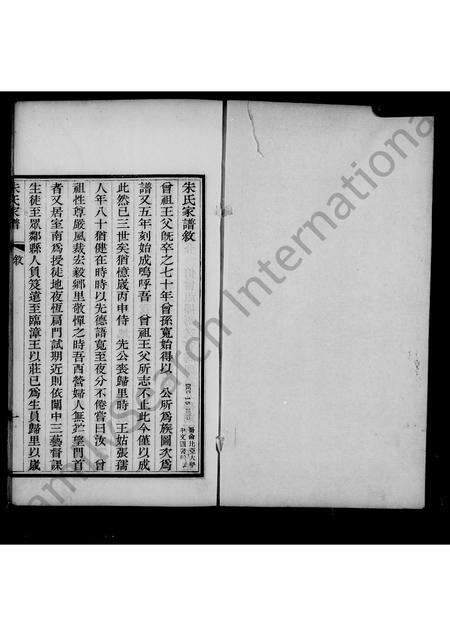 宋氏家譜敘
曾祖王父既卒之七十年曾孫寬始得以 公所為族圖次為
譜又五年刻始成嗚呼吾 曾祖王父所志不止此今僅以成
此然已三世矣猶憶歲丙申侍 先公喪歸里時 王姑張孺
人年八十猶健在時時以先德語寬至夜分不倦嘗曰汝 曾
祖性尊嚴風裁宏毅鄉里敬憚之時吾西營婦人無 門首
者又居室南為授徒地夜恆扃門試 近則依閘中三藝督課
生徒至眾鄰縣人負笈遠至臨漳王以莊已為生員歸里以歲
宋氏家譜 敘 一
DEC 15
哥倫比亞大學
中文圖書
FamilySearch International